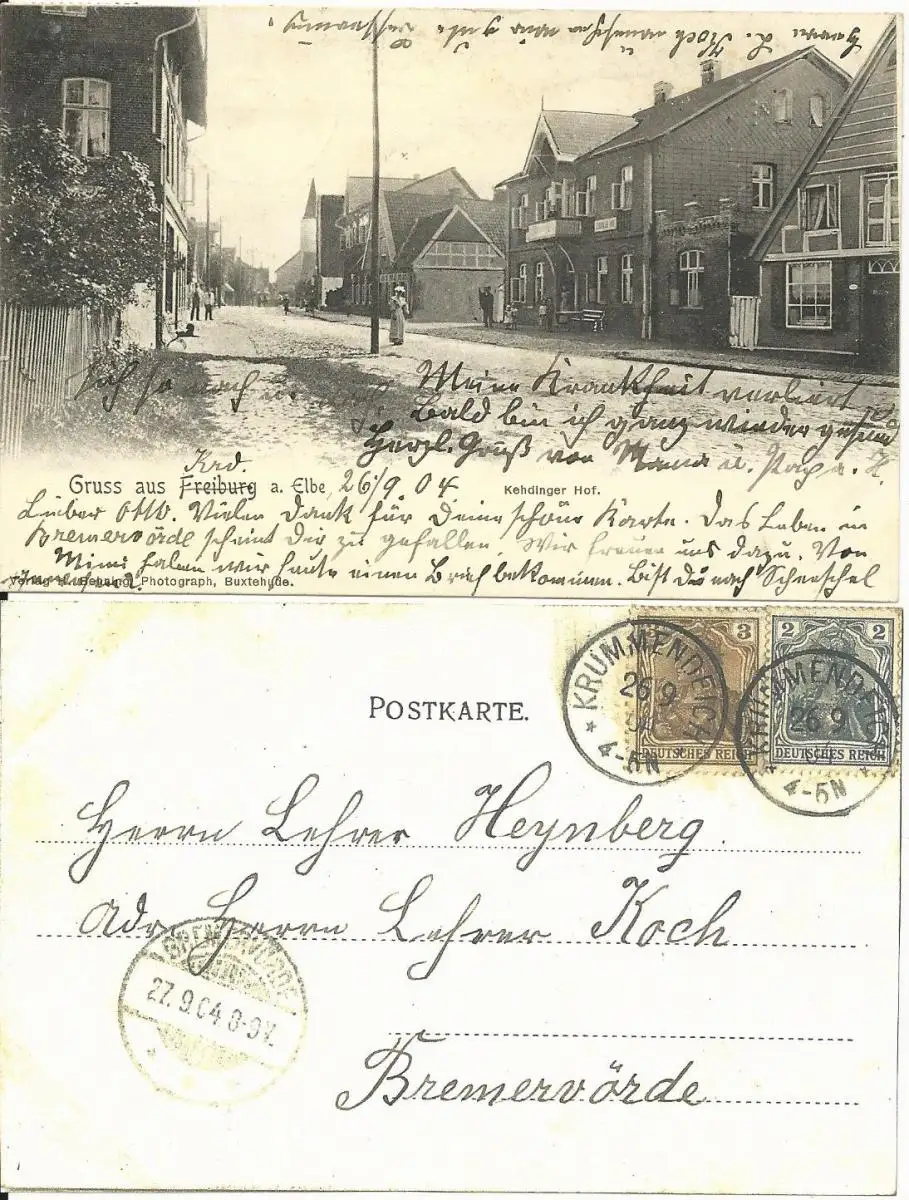 Herrn L. Koch
Meine Krankheit verliert
bald bin ich ganz wieder gesund
Herzl. Gruß von Mama u. Papa.
Krd.
Gruss aus Freiburg a. Elbe, 26/9. 04
Kehdinger Hof.
Lieber Otto. Vielen Dank für Deine schöne Karte. Das Leben in
Bremervörde scheint Dir zu gefallen. Wir freuen uns dazu. Von
Mimi haben wir heute einen Brief bekommen. Bist Du nach Scheeßel
Photograph, Buxtehude.
POSTKARTE.
3
DEUTSCHES REICH
2 2
DEUTSCHES REICH
KRUMMENDEICH
26 9
4-5N
KRUMMENDEICH
26 9
04
4-5N
Herrn Lehrer Heynberg.
Adr. Herrn Lehrer Koch
27.9.04 8-9V.
Bremervörde